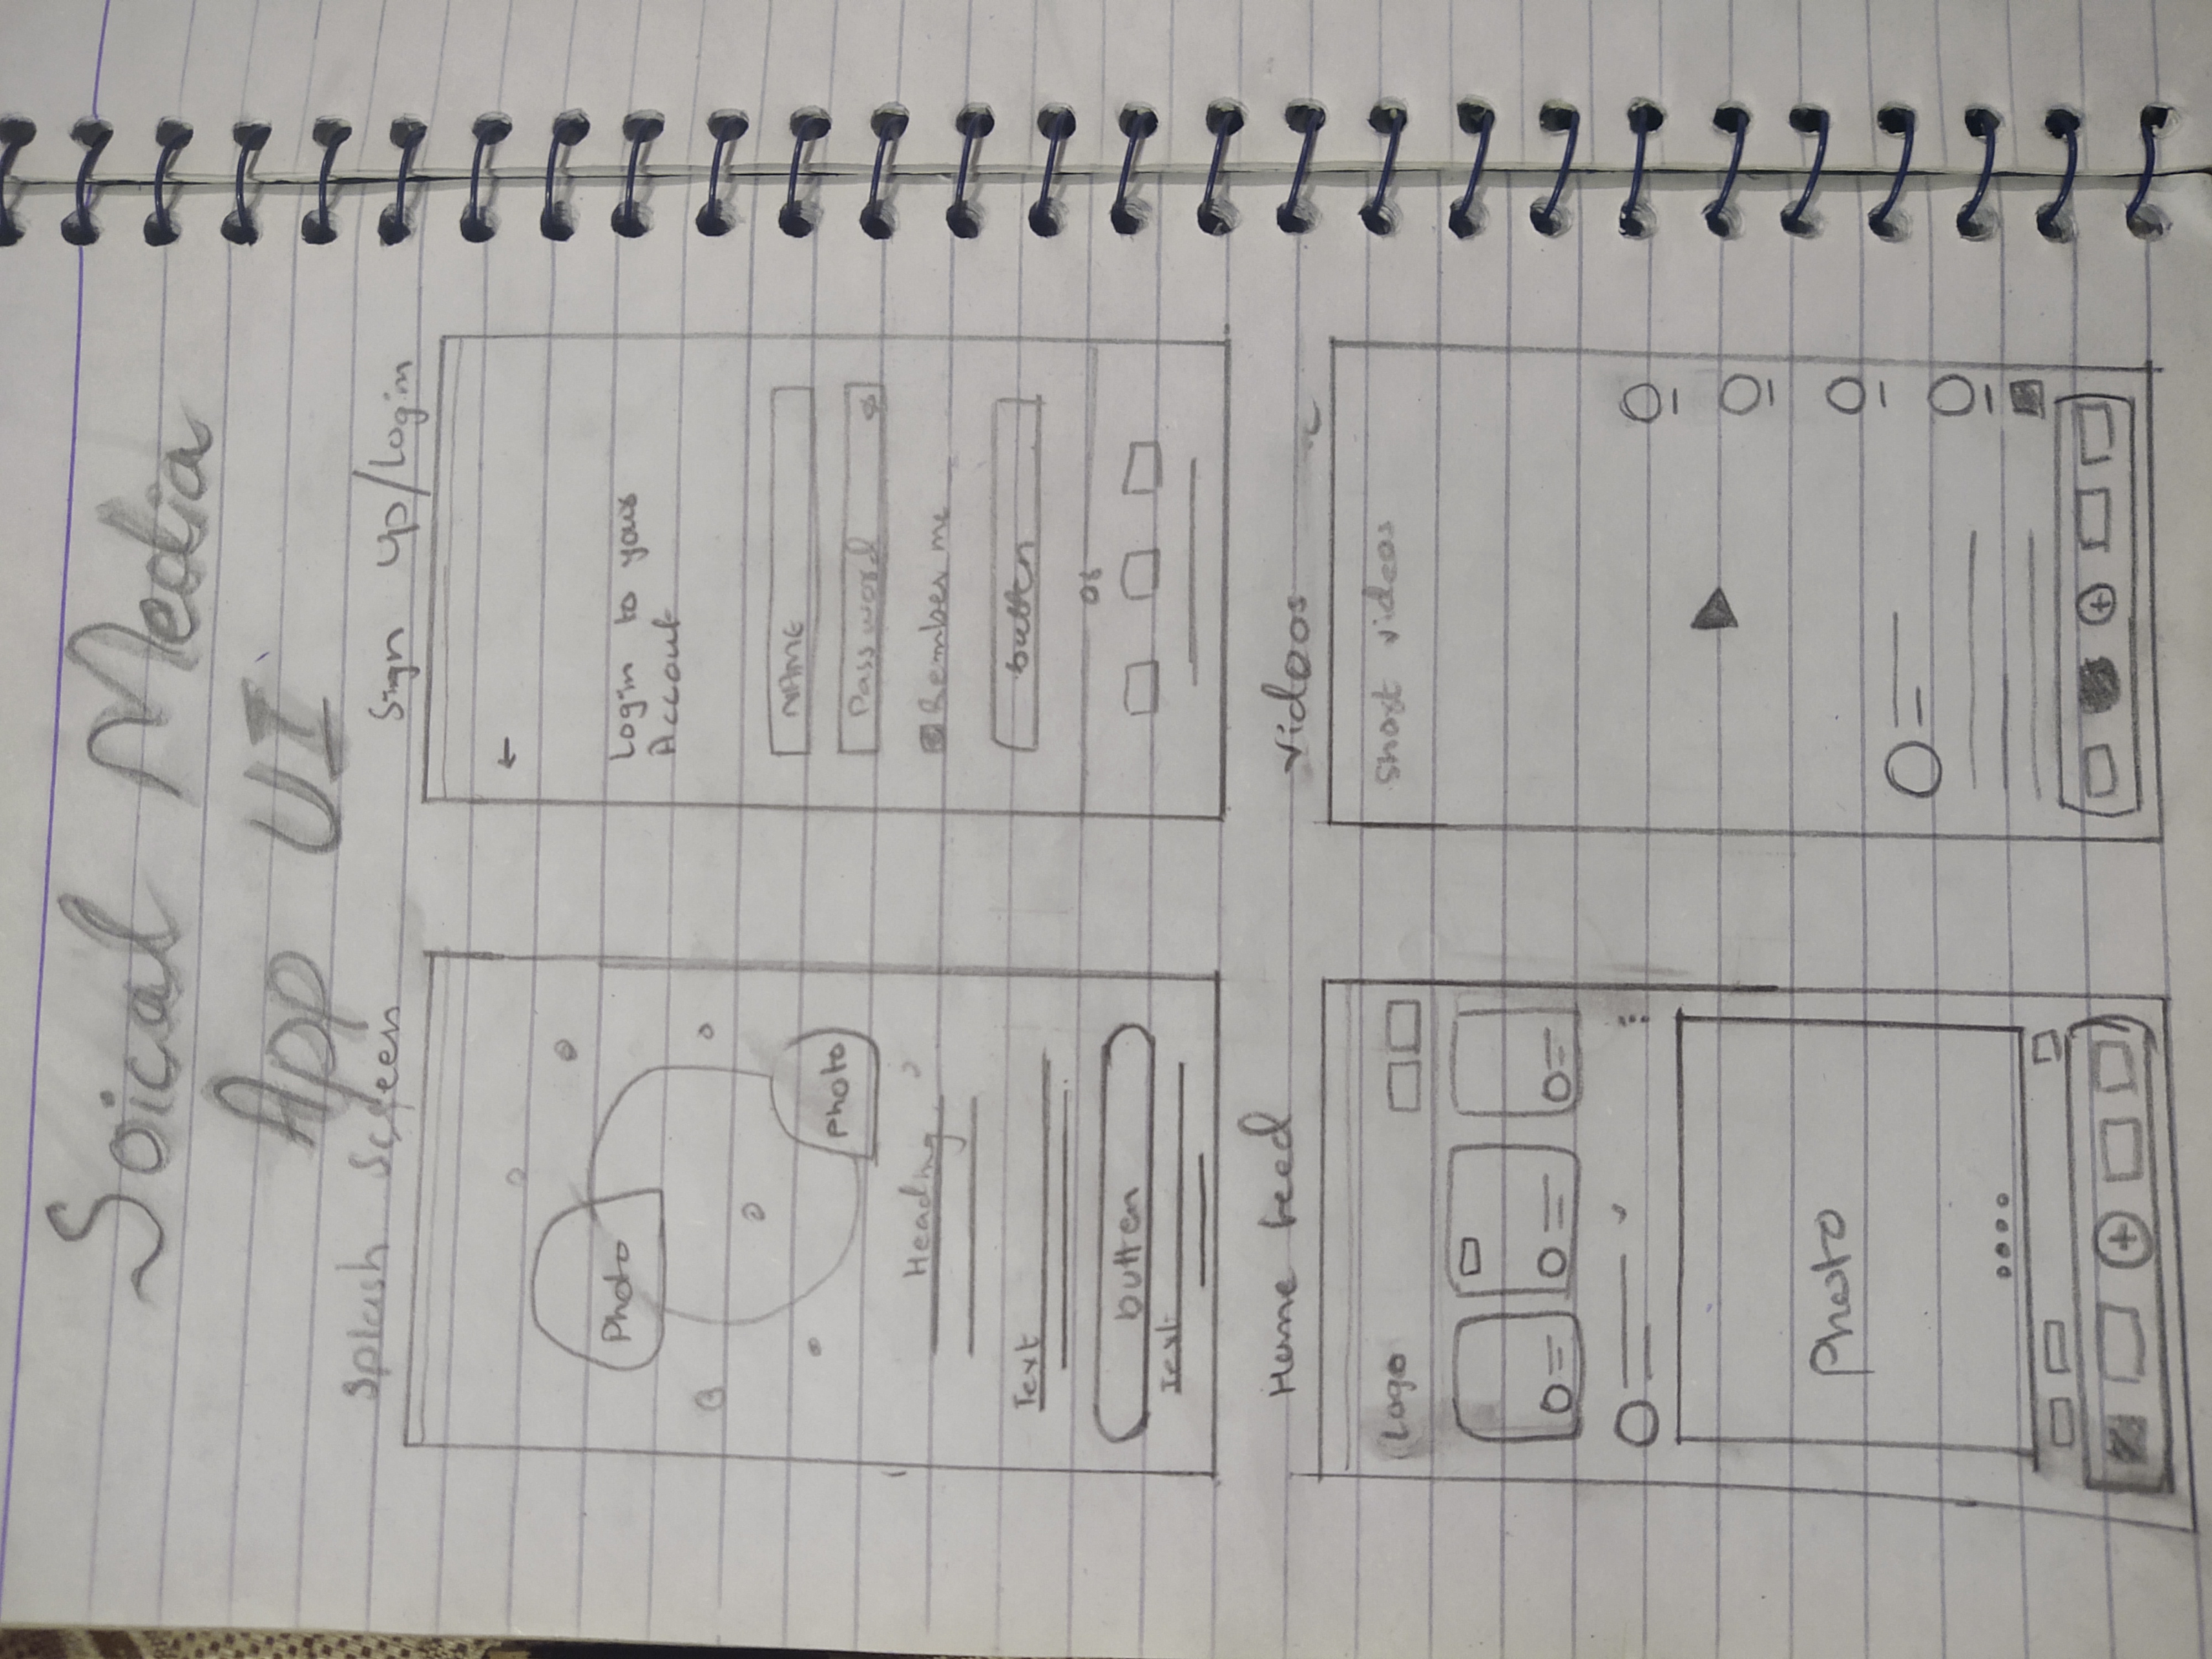 Soical Media
App UI
Splash Screen
Photo
Photo
Heading
Text
button
Text
Sign up/Login
←
Login to your
Accout
NAME
Password
Rember me
button
or
Home feed
Logo
Photo
Videos
Short videos